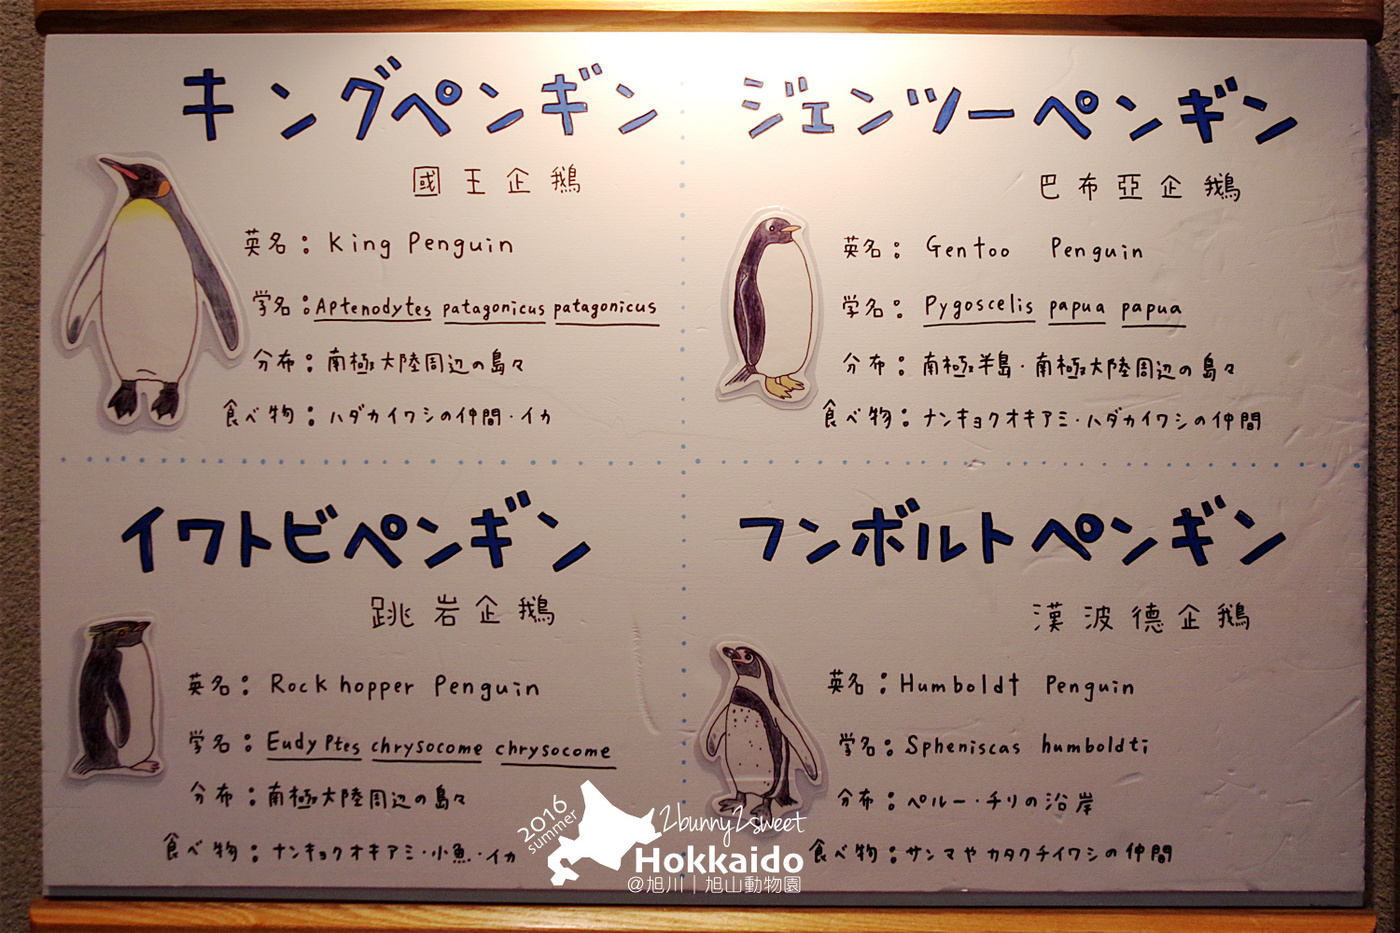 キングペンギン
國王企鵝
英名：King Penguin
学名：Aptenodytes patagonicus patagonicus
分布：南極大陸周辺の島々
食べ物：ハダカイワシの仲間・イカ
ジェンツーペンギン
巴布亞企鵝
英名：Gentoo Penguin
学名：Pygoscelis papua papua
分布：南極半島・南極大陸周辺の島々
食べ物：ナンキョクオキアミ・ハダカイワシの仲間
イワトビペンギン
跳岩企鵝
英名：Rock hopper Penguin
学名：Eudyptes chrysocome chrysocome
分布：南極大陸周辺の島々
食べ物：ナンキョクオキアミ・小魚・イカ
フンボルトペンギン
漢波德企鵝
英名：Humboldt Penguin
学名：Spheniscas humboldti
分布：ペルー・チリの沿岸
食べ物：サンマやカタクチイワシの仲間
2016
summer
2bunny2sweet
Hokkaido
@旭川｜旭山動物園